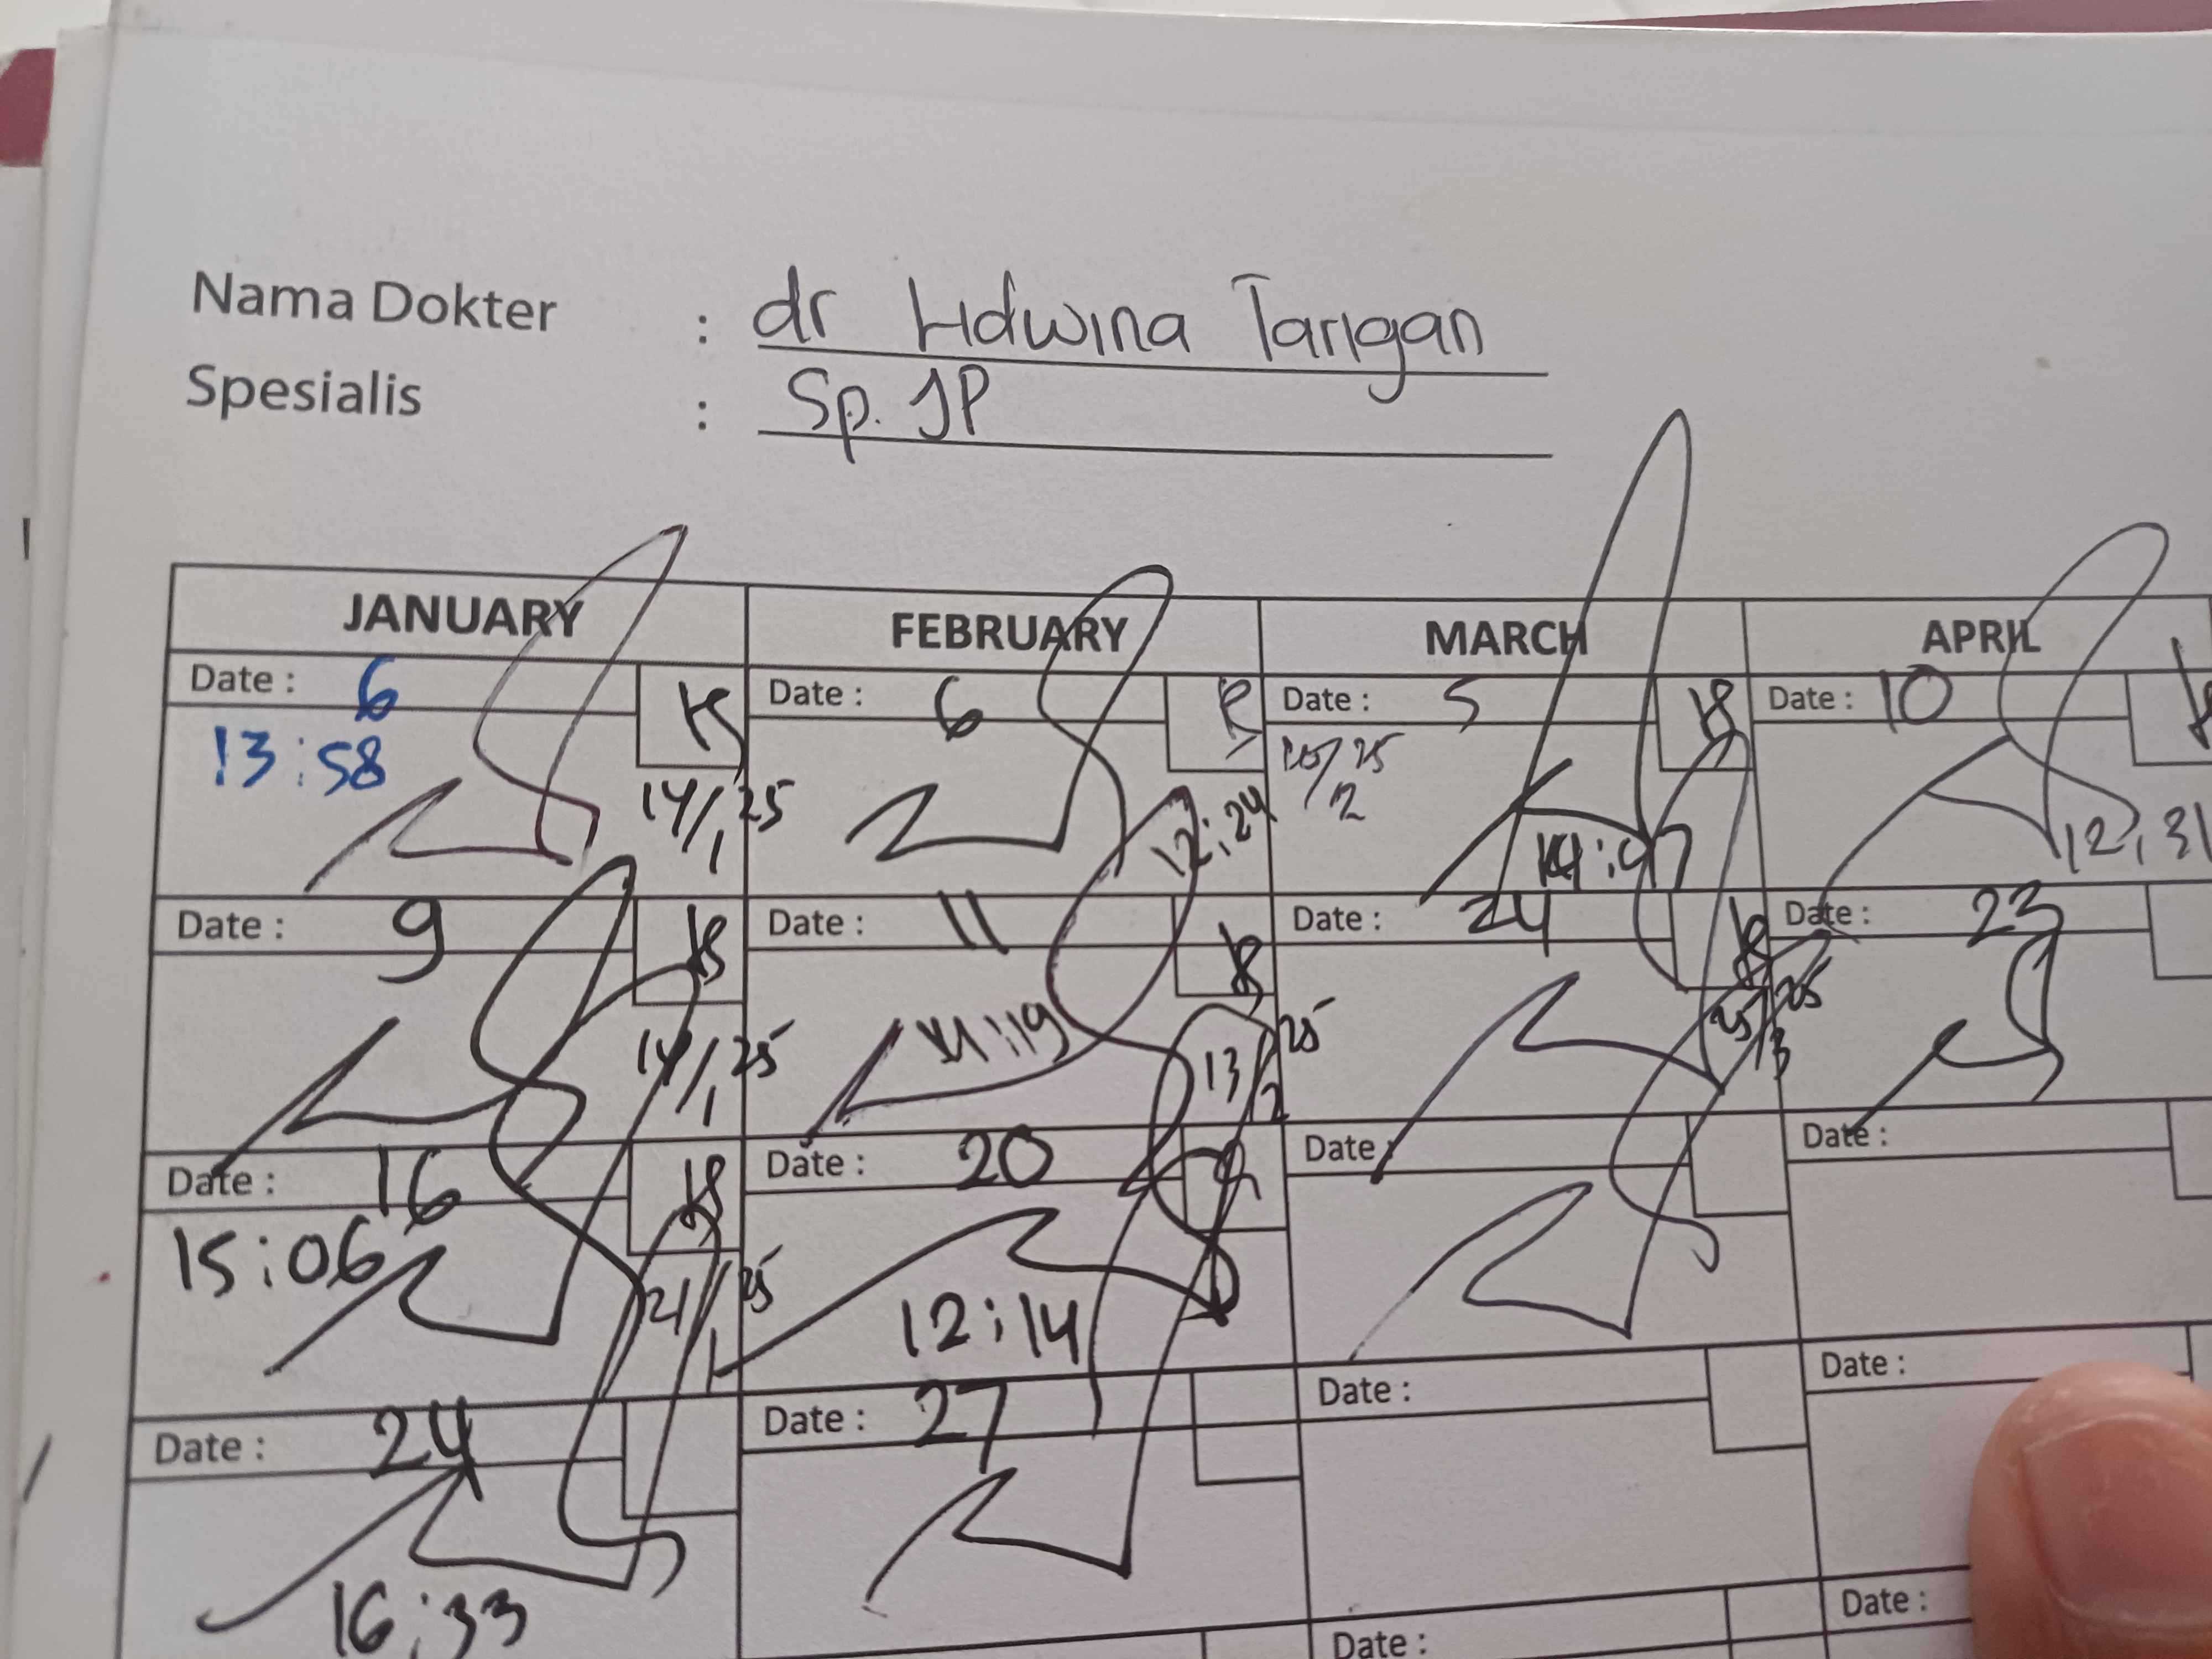 Nama Dokter : dr Lidwina Tarigan
Spesialis : Sp. JP
JANUARY FEBRUARY MARCH APRIL
Date : 6 Date : 6 Date : 5 Date : 10
13:58
14/1 25 12:24 25/2 12:31
Date : 9 Date : 11 Date : 24 Date : 23
14/1 25 11:19 13/2 25 25/3 25
Date : 16 Date : 20 Date : Date :
15:06 21/1 25 12:14
Date : 24 Date : 27 Date : Date :
16:33
Date : Date :